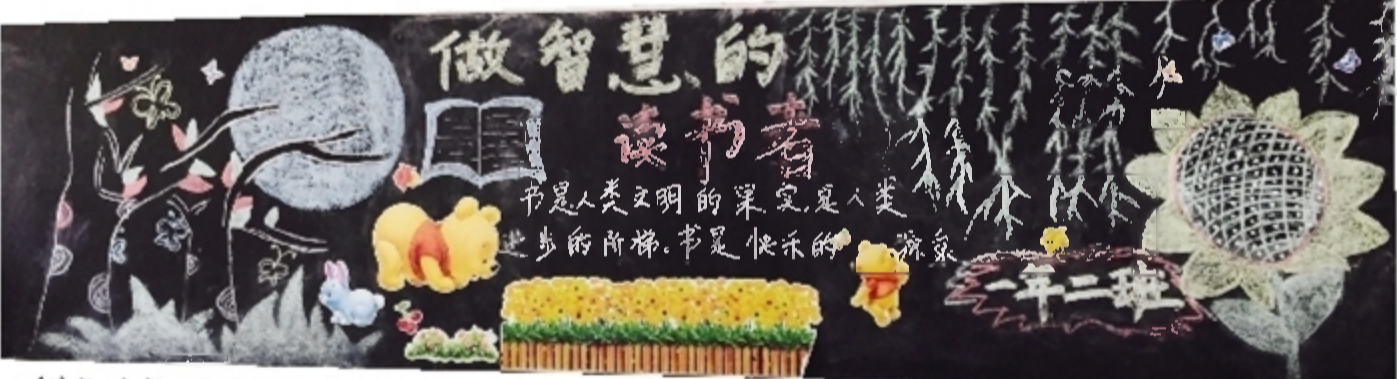 做智慧的
读书者
书是人类文明的果实,是人类
进步的阶梯。书是快乐的源泉
一年二班